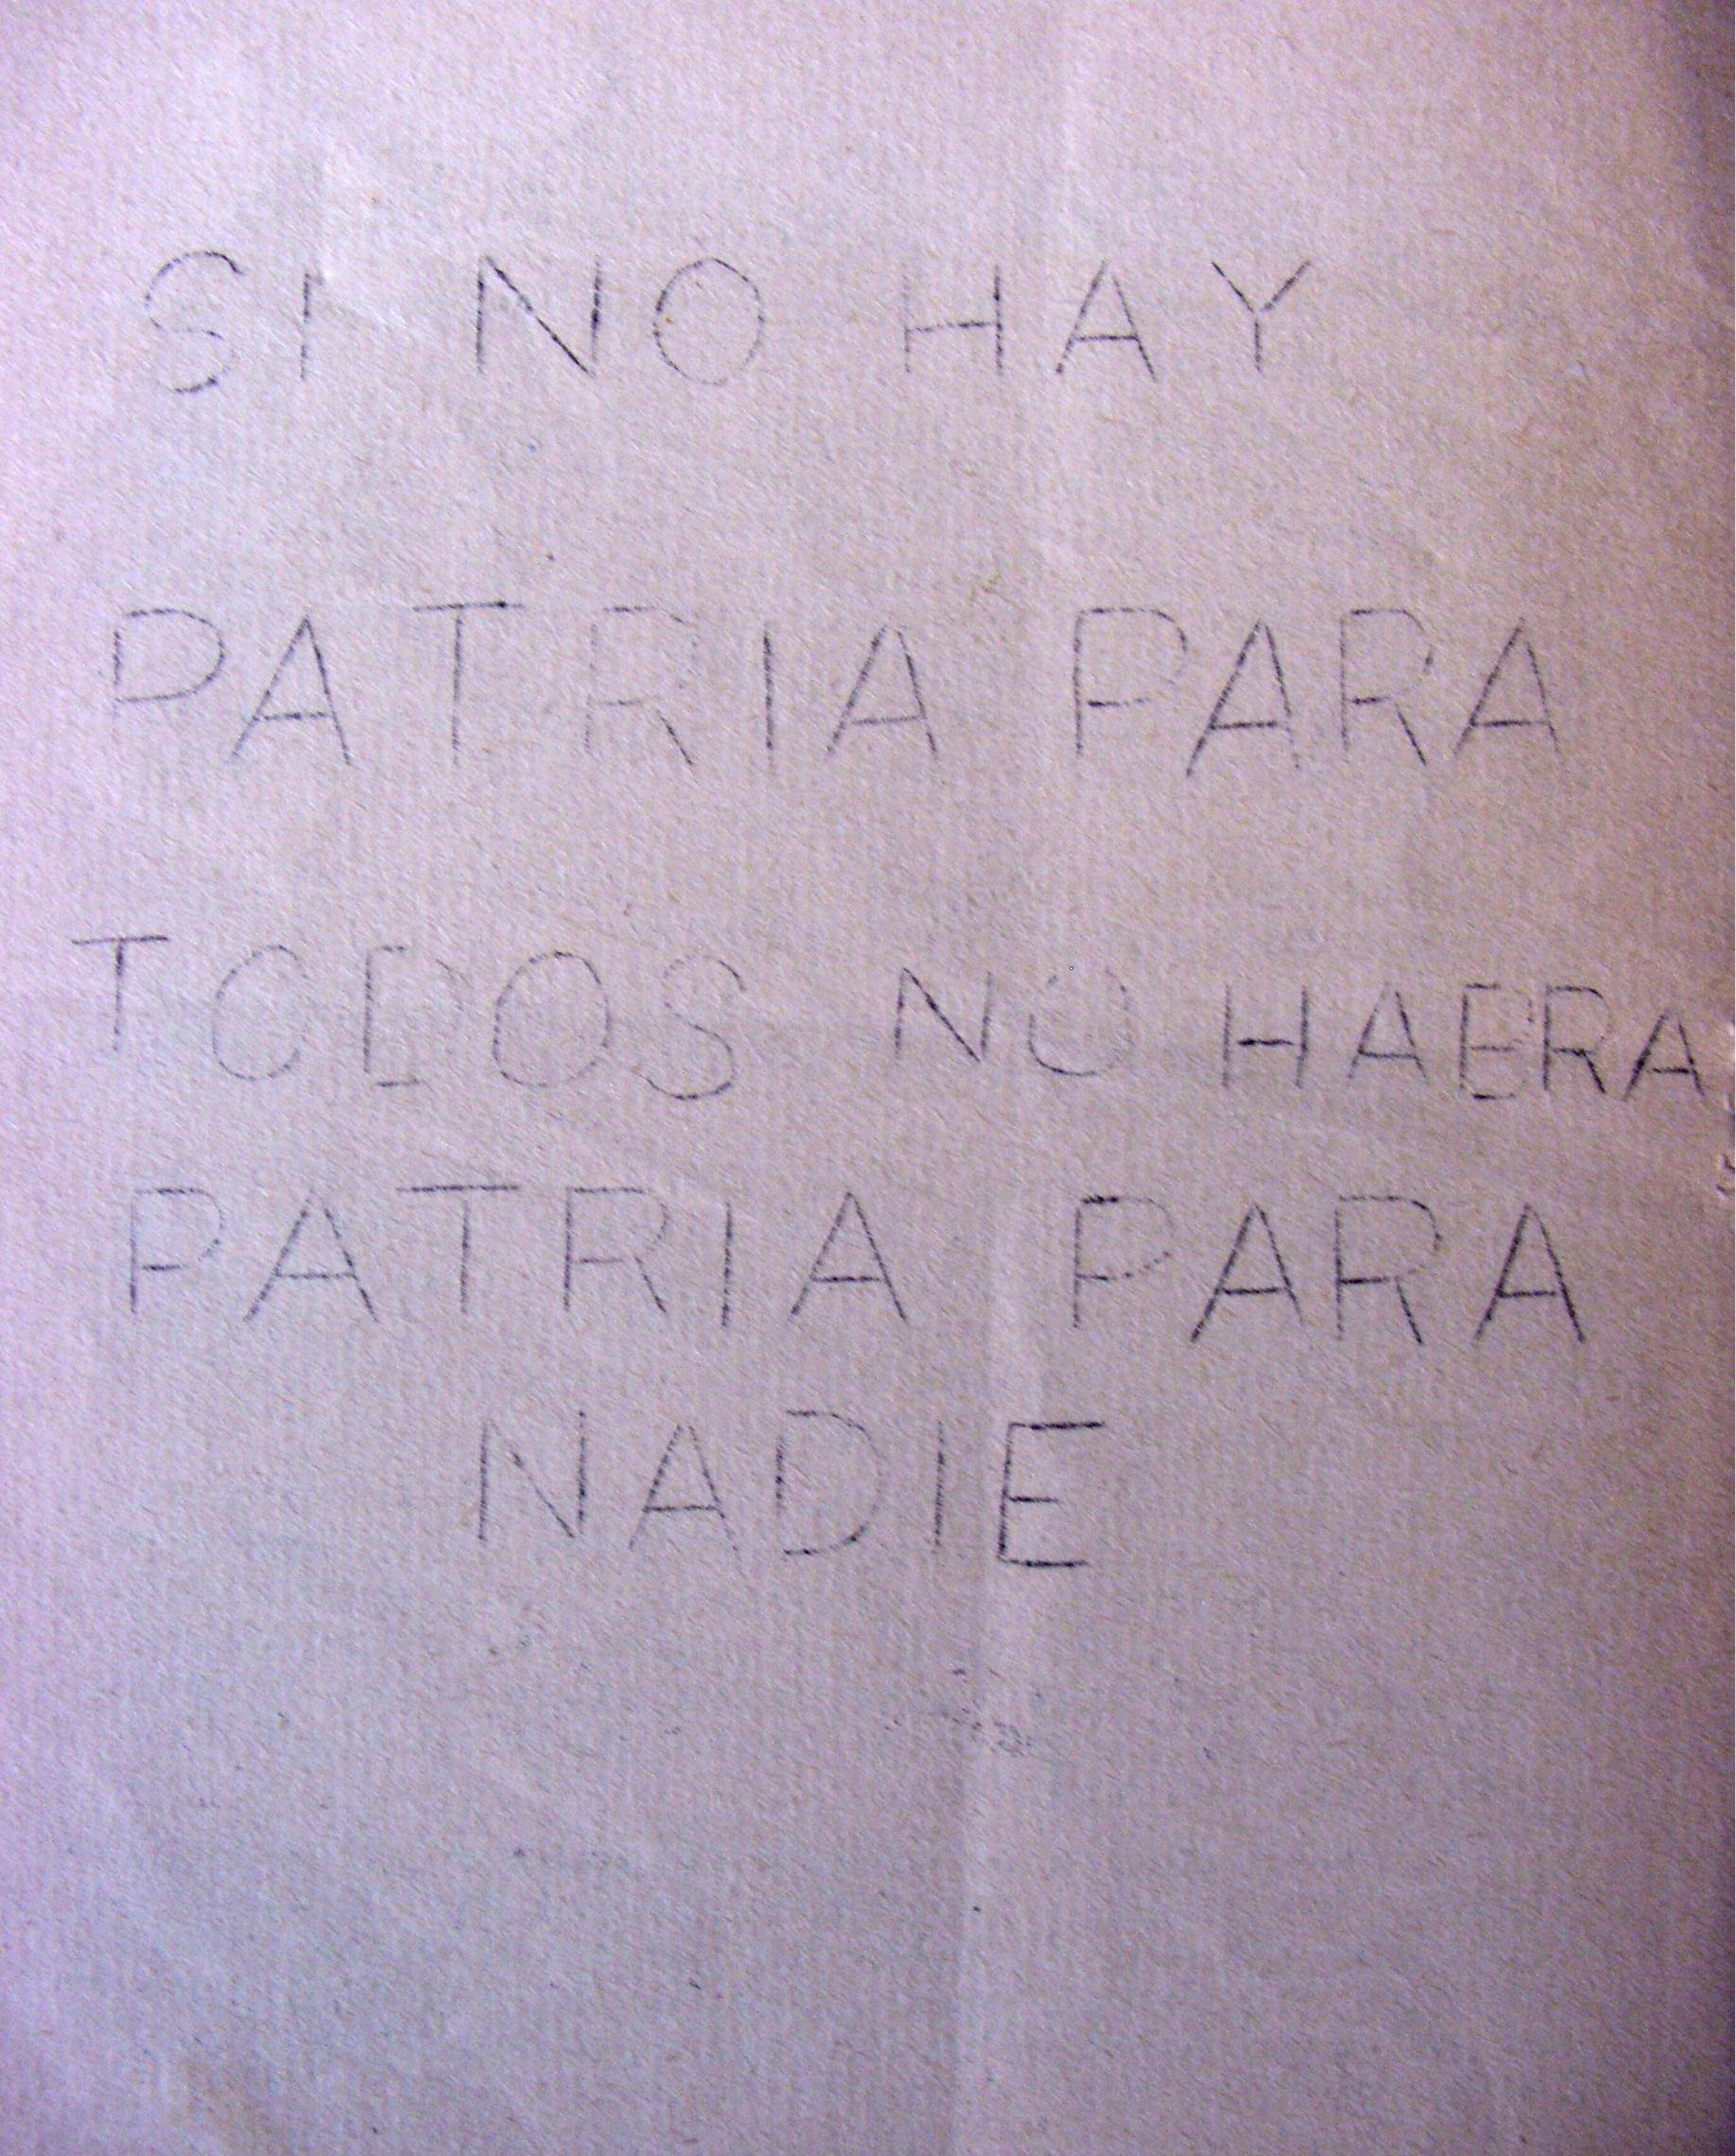 SI NO HAY
PATRIA PARA
TODOS NO HABRA
PATRIA PARA
NADIE